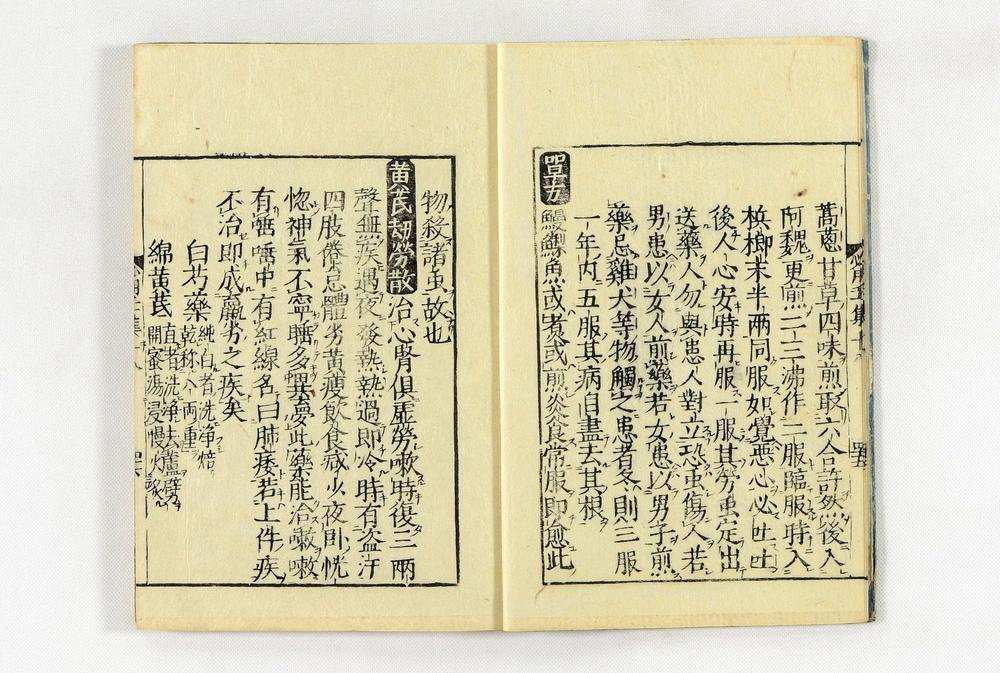 蒿葱甘草四味煎取六合許然後入
阿魏更煎二三沸作二服臨服時入
梹榔末半兩同服如覺惡心必吐吐
後人心安時再服一服其勞虫定出
送藥人勿與患人對立恐虫傷人若
男患以女人煎藥若女患以男子煎
藥忌雞犬等物觸之患者冬則三服
一年内五服其病自盡去其根
單方
鰻鱺魚或煮或煎炎食常服即愈此
物殺諸虫故也
黄芪劫勞散治心腎俱虚勞嗽時復三兩
聲無疾遇夜發熱熱過即冷時有盗汗
四肢倦怠體劣黄瘦飲食减少夜卧恍
惚神氣不寧睡多異夢此藥能治嗽嗽
有唾唾中有紅線名曰肺痿若上件疾
不治即成羸劣之疾矣
白芍藥純白者洗浄焙
乾称六兩重
綿黄芪直者洗浄去蘆劈
開蜜湯浸慢火炙